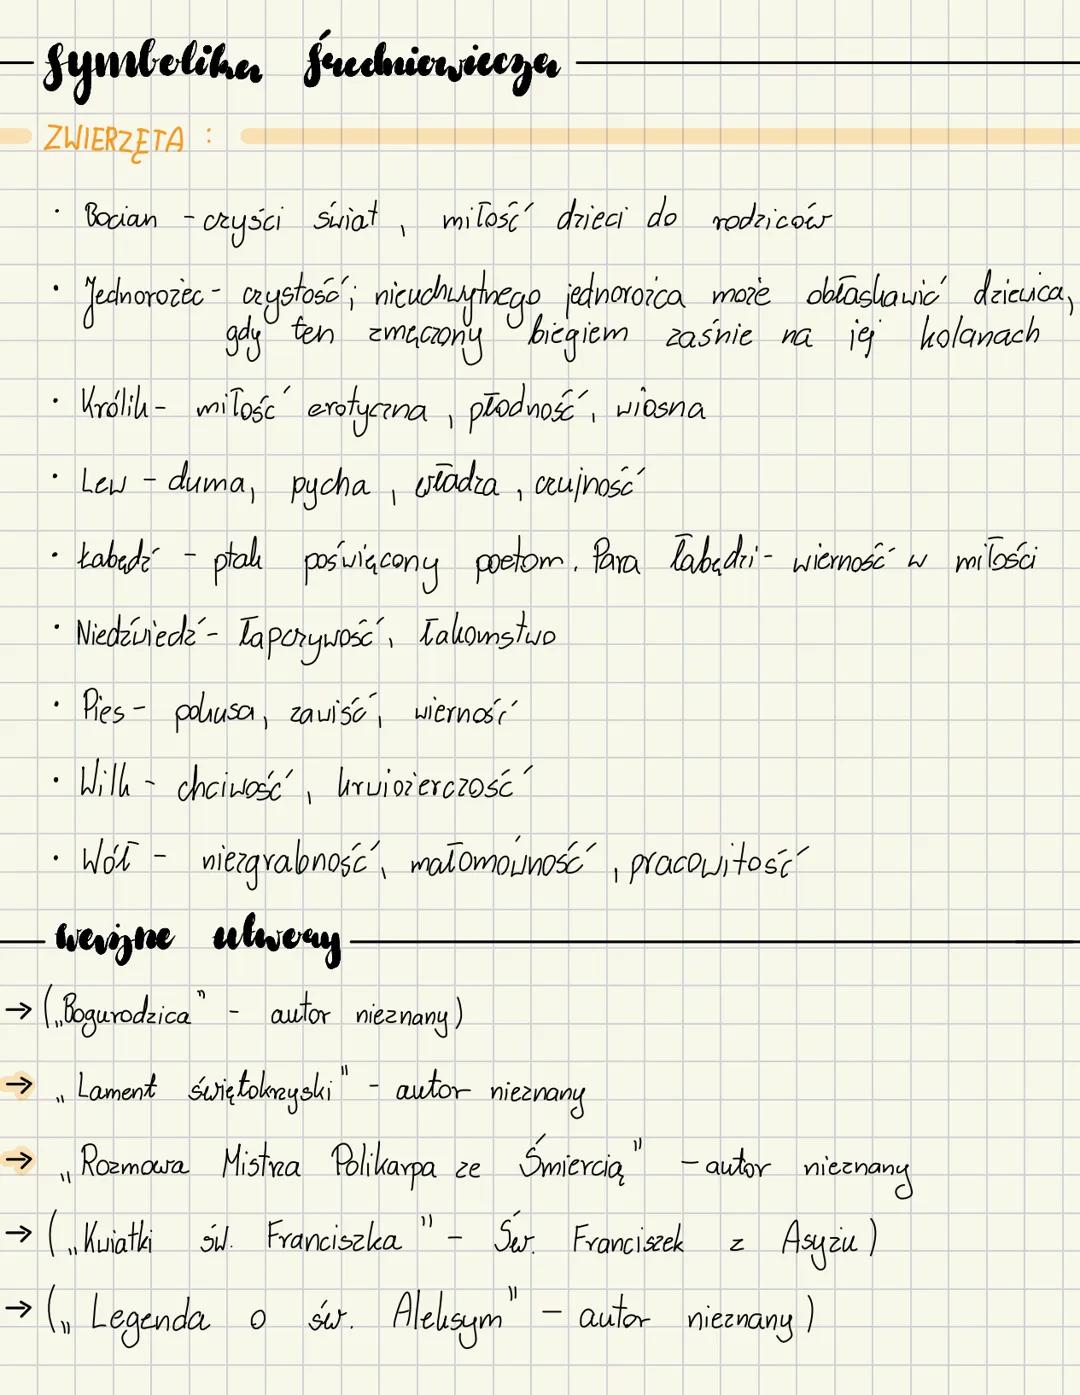 Symbolika średniowiecza
ZWIERZĘTA :
· Bocian - czyści świat, miłość dzieci do rodziców
· Jednorożec - czystość; nieuchwytnego jednorożca może obłaskawić dziewica,
gdy ten zmęczony biegiem zaśnie na jej kolanach
· Królik - miłość erotyczna, płodność, wiosna
· Lew - duma, pycha, władza, czujność
· Łabędź - ptak poświęcony poetom. Para łabędzi - wierność w miłości
· Niedźwiedź - łapczywość, łakomstwo
· Pies - pokusa, zawiść, wierność
· Wilk - chciwość, krwiożerczość
· Wół - niezgrabność, małomówność, pracowitość
ważne utwory
→ („Bogurodzica" - autor nieznany)
→ „Lament świętokrzyski" - autor nieznany
→ „Rozmowa Mistrza Polikarpa ze Śmiercią" - autor nieznany
→ („Kwiatki św. Franciszka" - Św. Franciszek z Asyżu)
→ („Legenda o św. Aleksym" - autor nieznany)